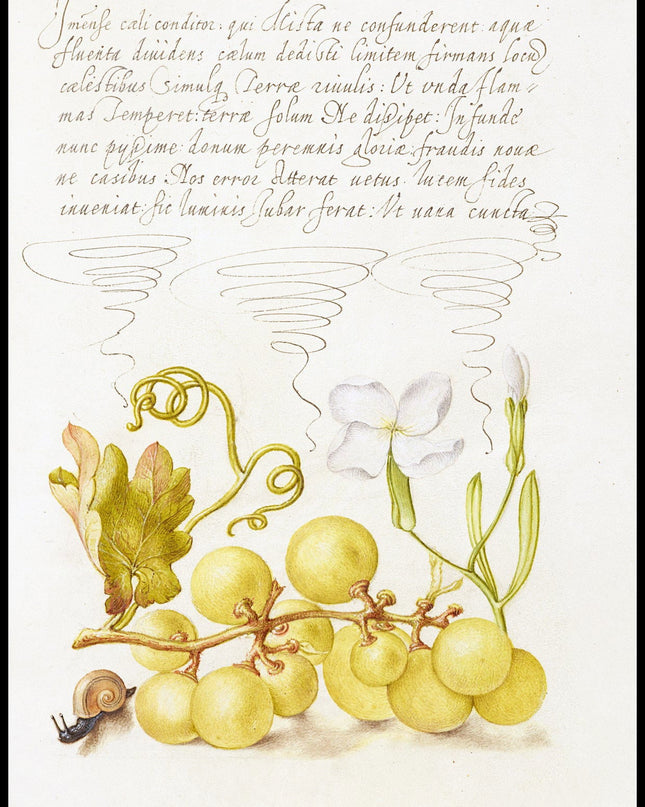 Jmense cæli conditor: qui Mista ne confunderent aquæ
fluenta diuidens cælum dedisti limitem firmans locũ
cælestibus Simulq Terræ riuulis: Ut vnda flam=
mas Temperet: terræ solum Ne dissipet: Jnfunde
nunc pyssime donum peremnis gloriæ fraudis nouæ
ne casibus Nos error Atterat uetus lucem fides
inueniat: sic luminis Jubar ferat: Ut uana cuncta